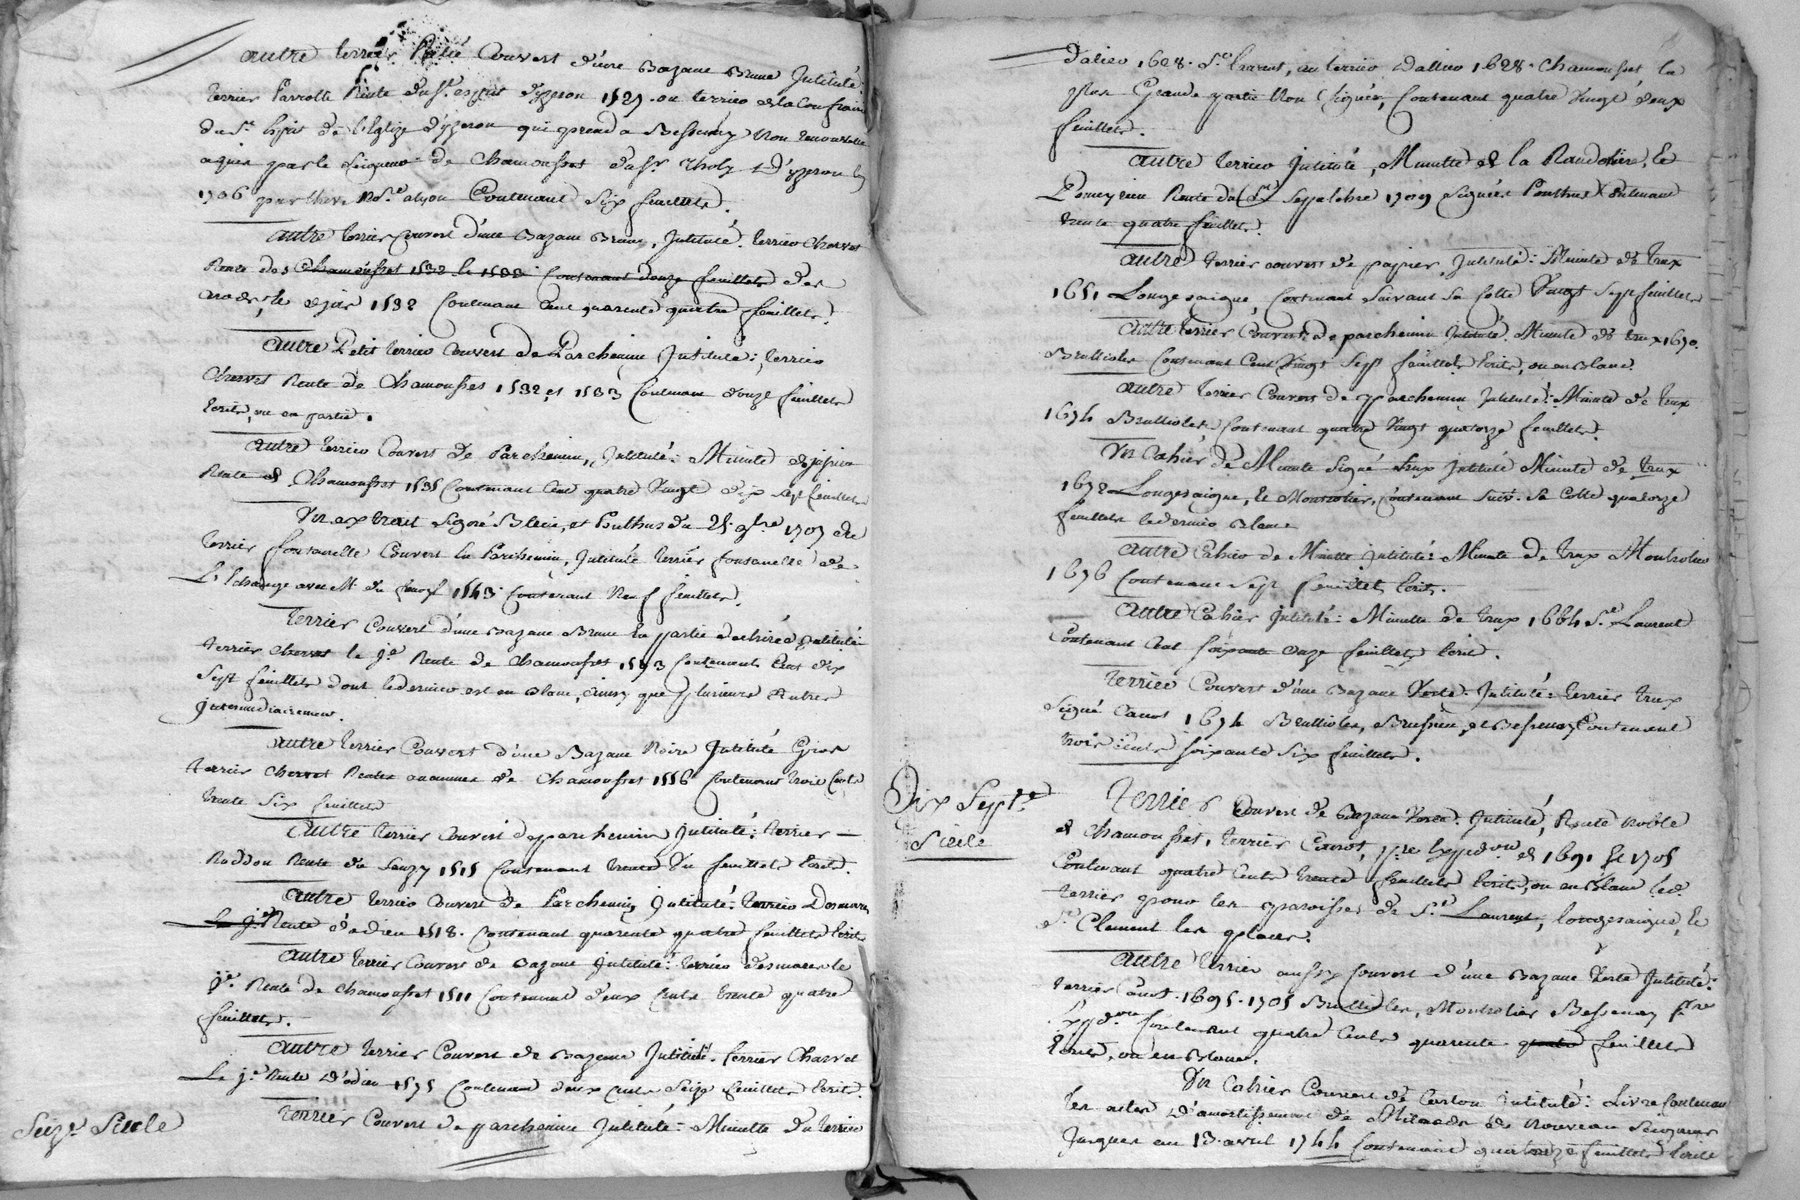 autre terrier Relié Couvert d'une Bazane Brune Intitulé
terrier Parrotte Rente du St. esprit d'yzeron 1529. ou terrier de la Confrairie
du St. Esprit de l'Eglize d'yzeron qui prend a Bessenay Non renouvellé
aquis par le Seigneur de Chamousset du Sr. Tholy d'yzeron
1706 Contenant Six feuillets.
autre terrier Couvert d'une Bazane Brune, Intitulé. terrier Chervet
Rente des Chamousset 1532 le 1533 Contenant douze feuillets des
1532 Contenant Cent quarente quatre feuillets.
autre Petit terrier Couvert de Parchemin Intitulé: terrier
Chervet Rente de Chamousset 1532 et 1533 Contenant douze feuillets
Ecrits, ou en partie.
autre terrier Couvert de Parchemin, Intitulé: Minute
Rente de Chamousset 1535 Contenant Cent quatre Vingt dix sept feuillets
Un extrait Signé et Ponthus du 25. 9bre 1709 du
terrier fontanelle Couvert En Parchemin, Intitulé terrier fontanelle de
L'Echange avec Mr. du 1543 Contenant Neuf feuillets.
Terrier Couvert d'une Bazane Brune En partie dechirée Intitulé
terrier Chervet le je. Rente de Chamousset 1543 Contenant Cent dix
Sept feuillets dont le dernier est en Blanc, ainsy que plusieurs autres
Intermediairement.
autre terrier Couvert d'une Bazane Noire Intitulé Gros
terrier Chervet Rente de Chamousset 1556 Contenant trois Cents
trente Six feuillets
autre terrier Couvert de parchemin Intitulé: terrier
Raddon Rente du 1515 Contenant trente Un feuillets Ecrits.
autre terrier Couvert de Parchemin Intitulé: terrier Desmares
Le je. Rente d'odieu 1518. Contenant quarente quatre feuillets Ecrits
autre terrier Couvert de Bazane Intitulé: terrier desmares le
je. Rente de Chamousset 1511 Contenant deux Cents trente quatre
feuillets.
autre terrier Couvert de Bazane Intitulé. terrier Charvet
Le je. Rente d'odieu 1575 Contenant deux Cents Seize feuillets Ecrits.
Seize. Siecle
terrier Couvert de parchemin Intitulé: Minutte du terrier
1628. St. Laurent, au terrier 1628. Chamousset la
plus Grande partie Non Signée, Contenant quatre Vingt deux
feuillets.
autre terrier Intitulé, Minutte de la Le
Pomeyrieu Rente du Septembre 1709 Signée Ponthus Contenant
trente quatre feuillets.
autre terrier couvert de papier, Intitulé: Minute de trux
1651 Longesaigne, Contenant Suivant Sa Cotte Vingt Sept feuillets
autre terrier Couvert de parchemin Intitulé. Minute de trux 1690.
Brullioles Contenant Cent Vingt Sept feuillets Ecrits, ou en Blanc.
autre terrier Couvert de parchemin Intitulé: Minute de trux
1674 Brullioles Contenant quatre Vingt quatorze feuillets.
Un Cahier de Minute Signé trux Intitulé Minute de trux
1672 Longesaigne, Le Montrotier, Contenant Suivt. Sa Cotte quatorze
feuillets le dernier Blanc
autre Cahier de Minutte Intitulé: Minute de trux Montrotier
1676 Contenant Sept feuillets Ecrits.
autre Cahier Intitulé: Minutte de trux 1664 St. Laurent
Contenant Cent Soixante onze feuillets Ecrit.
terrier Couvert d'une Bazane Verte. Intitulé: terrier trux
Signé Canot 1674 Brullioles, Brussieu, et Bessenay Contenant
trois Cents soixante Six feuillets.
Dix Septe.
Siecle
Terrier Couvert de Bazane Verte. Intitulé, Rente Noble
de Chamousset, terrier Canot, 1ere. Expedon. de 1691 1705
Contenant quatre Cents trente feuillets Ecrits, ou en Blanc led.
terrier pour les paroisses de St. Laurent, Longesaigne, Le
St. Clement les places.
autre terrier aussy Couvert d'une Bazane Verte Intitulé:
terrier Canot. 1695. 1705 Brullioles, Montrotier Bessenay
Expdon. Contenant quatre Cents quarente quatre feuillets
Ecrits, ou en Blanc.
Un Cahier Couvert de Carton Intitulé: Livre Contenant
les actes d'amortissement de de nouveau Seigneur
Jusques au 13. avril 1744 Contenant feuillets Ecrits